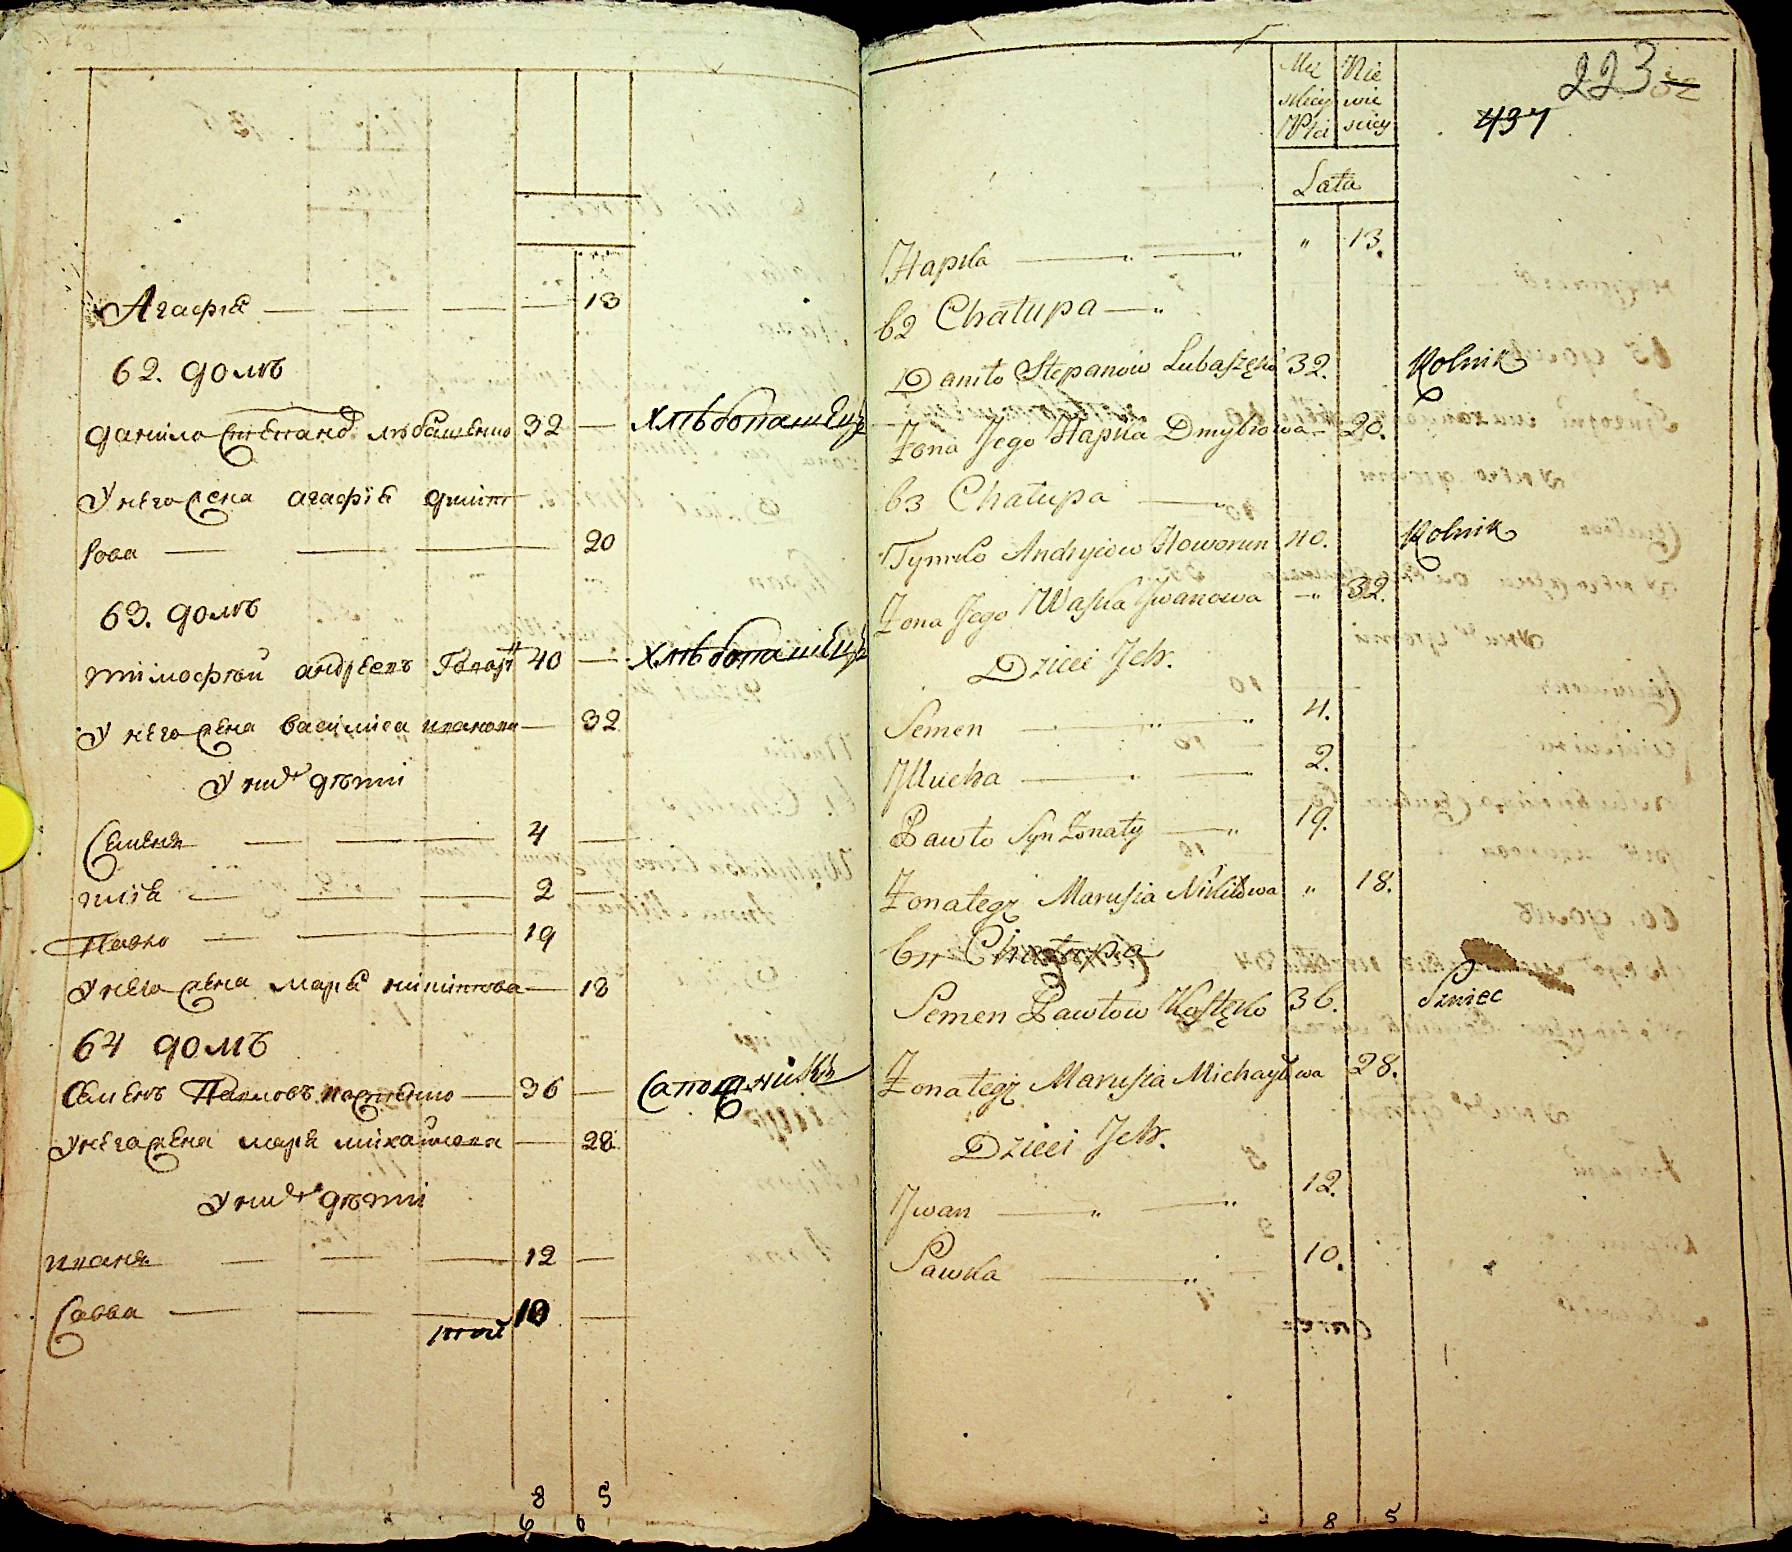 Агафія — — — — 13
62. домъ
данило степанов любашенко 32 — хлѣбопашецъ
У него жена агафія дмит
рова — — — 20
63. домъ
тимофѣй андреевъ 40 — хлѣбопашецъ
У него жена василиса иванова — 32
У них дѣти
Семенъ — — — 4 —
2 —
Павло — — — 19
У него жена марія никитова — 18
64 домъ
Семенъ Павловъ костенко — 36 — Сапожникъ
У него жена марія михайлова — 28
У них дѣти
иванъ — — — 12 —
Савва — — — 10 —
8 5
6 6
223 52
437
Mę Nie
skiey wie
Płci sciey
Lata
Hapka — " — " " 13.
62 Chałupa — "
Daniło Stepanow Lubaszęko 32. Rolnik
Żona Jego Hapka Dmytrowa — 20.
63 Chałupa — "
Tymko Andryiow Howorun 40. Rolnik
Żona Jego Waska Iwanowa — " 32.
Dzieci Ich.
Semen — " — " 4.
2.
Pawło Syn Żonaty — " 19.
Żona tegż Marusia Nikitowa " 18.
64 Chałupa
Semen Pawłow Kostęko 36. Szwiec
Żona tegż Marusia Michayłowa 28.
Dzieci Ich.
Iwan — " — " 12.
Sawka — " 10.
8 5